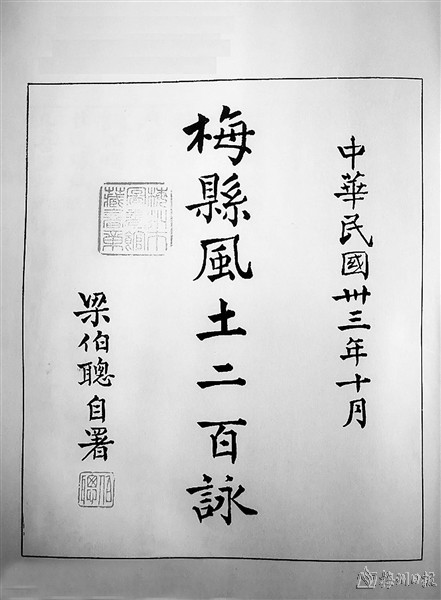 中華民國卅三年十月
梅縣風土二百詠
梁伯聰自署
伯聰
梅州日报